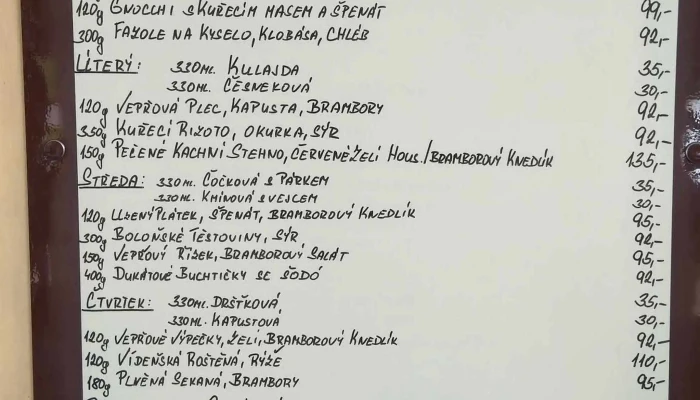 120g GNOCCHI S KUŘECÍM MASEM A ŠPENÁT 99,-
300g FAZOLE NA KYSELO, KLOBÁSA, CHLÉB 92,-
ÚTERÝ: 330ML KULAJDA 35,-
330ML ČESNEKOVÁ 30,-
120g VEPŘOVÁ PLEC, KAPUSTA, BRAMBORY 92,-
350g KUŘECÍ RIZOTO, OKURKA, SÝR 92,-
150g PEČENÉ KACHNÍ STEHNO, ČERVENÉ ZELÍ HOUS./BRAMBOROVÝ KNEDLÍK 135,-
STŘEDA: 330ML. ČOČKOVÁ S PÁRKEM 35,-
330ML. KMÍNOVÁ S VEJCEM 30,-
120g UZENÝ PLÁTEK, ŠPENÁT, BRAMBOROVÝ KNEDLÍK 95,-
300g BOLOŇSKÉ TĚSTOVINY, SÝR 92,-
150g VEPŘOVÝ ŘÍZEK, BRAMBOROVÝ SALÁT 95,-
400g DUKÁTOVÉ BUCHTIČKY SE ŠODÓ 92,-
ČTVRTEK: 330ML. DRŠŤKOVÁ 35,-
330ML. KAPUSTOVÁ 30,-
120g VEPŘOVÉ VÝPEČKY, ZELÍ, BRAMBOROVÝ KNEDLÍK 92,-
120g VÍDEŇSKÁ ROŠTĚNÁ, RÝŽE 110,-
180g PLNĚNÁ SEKANÁ, BRAMBORY 95,-